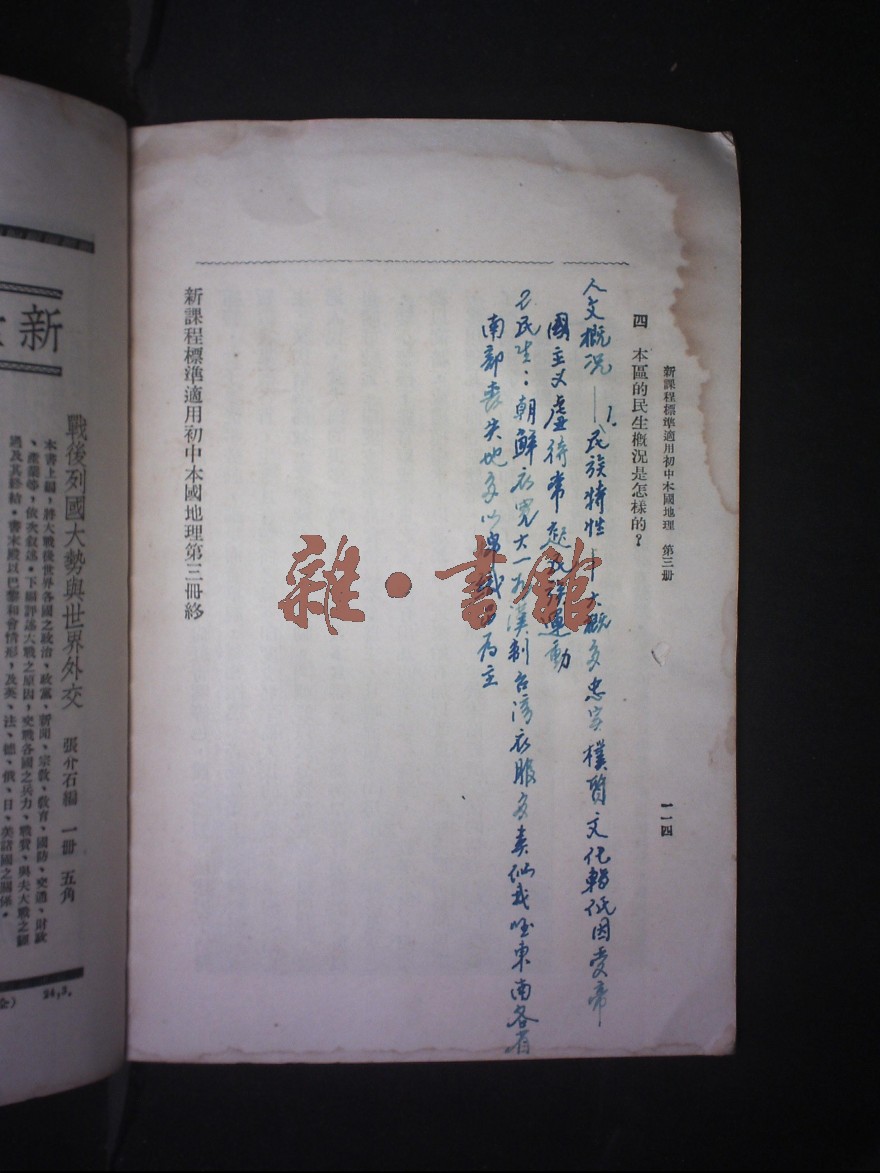 新課程標準適用初中本國地理 第三册
一一四
四 本區的民生概況是怎樣的？
人文概况——1.民族特性——大概多忠实樸質文化較低因受帝
國主义虐待常起民族運動
2民生：朝鮮衣宽大一如漢制台湾衣服多类似我唑東南各省
南部丧失地多以
为主
新課程標準適用初中本國地理第三冊終
雜·書館
新
戰後列國大勢與世界外交 張介石編 一冊 五角
本書上編，將大戰後世界各國之政治、政黨、新聞、宗教、教育、國防、交通、財政
、產業等，依次敍述。下編評述大戰之原因，交戰各國之兵力、戰費、與夫大戰之經
過及其終結。書末殿以巴黎和會情形，及英、法、德、俄、日、美諸國之關係。
24,3.